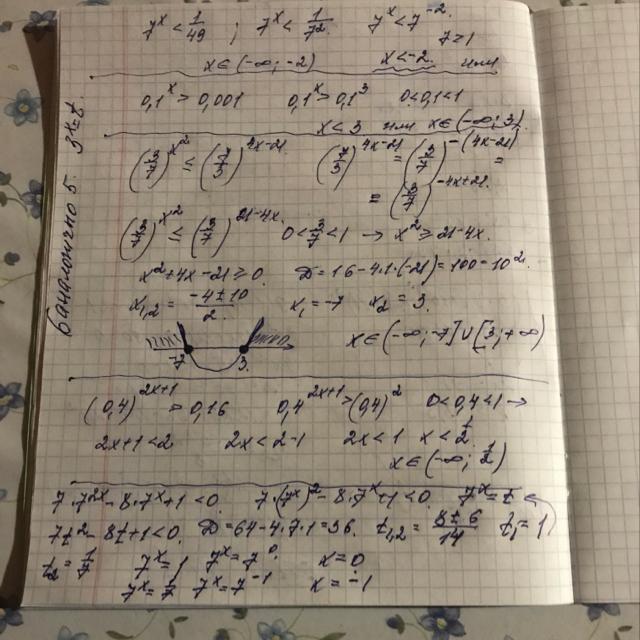 7^x < 1/49 ; 7^x < 1/7^2 7^x < 7^-2
7>1
x∈(-∞;-2) x<-2 или
0,1^x > 0,001 0,1^x > 0,1^3 0<0,1<1
x<3 или x∈(-∞;3)
(3/7)^x^2 ≤ (7/3)^4x-21 (7/3)^4x-21 = (3/7)^-(4x-21) =
= (3/7)^-4x+21
(3/7)^x^2 ≤ (3/7)^21-4x 0<3/7<1 → x^2 ≥ 21-4x
x^2+4x-21≥0. D=16-4·1·(-21)=100=10^2
x1,2 = (-4±10)/2 x1=-7 x2=3
x∈(-∞;-7]∪[3;+∞)
-7 3
(0,4)^2x+1 > 0,16 0,4^2x+1 > (0,4)^2 0<0,4<1 →
2x+1<2 2x<2-1 2x<1 x<1/2
x∈(-∞; 1/2)
7·7^2x - 8·7^x + 1 < 0. 7·(7^x)^2 - 8·7^x + 1 < 0. 7^x = t
7t^2 - 8t + 1 < 0. D=64-4·7·1=36. t1,2 = (8±6)/14 t1=1
t2=1/7 7^x=1 7^x=7^0 x=0
7^x=1/7 7^x=7^-1 x=-1
6 аналогично 5. 3^x=t.